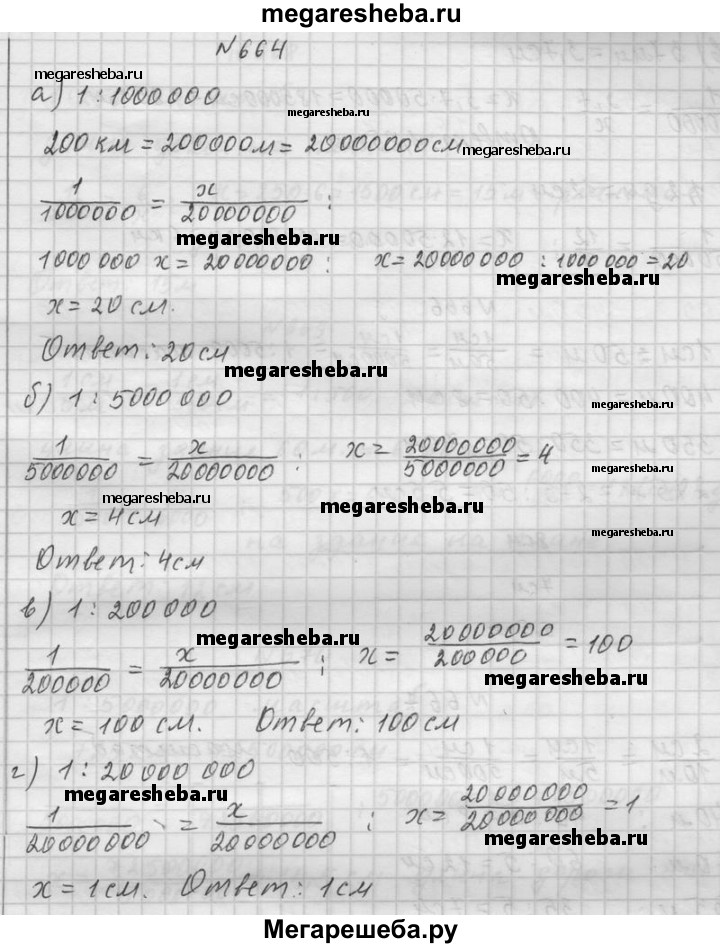 megaresheba.ru
N 664
megaresheba.ru
а) 1 : 1000 000
megaresheba.ru
200 км = 200000м = 20000000см
megaresheba.ru
1/1000000 = x/20000000 ;
megaresheba.ru
1000 000 x = 20000000 ; x = 20000000 : 1000 000 = 20
megaresheba.ru
x = 20 см.
Ответ: 20 см
megaresheba.ru
б) 1 : 5000 000
megaresheba.ru
1/5000000 = x/20000000 ; x = 20000000/5000000 = 4
megaresheba.ru
megaresheba.ru
megaresheba.ru
x = 4 см
Ответ: 4 см
в) 1 : 200 000
megaresheba.ru
1/200000 = x/20000000 ; x = 20000000/200000 = 100
megaresheba.ru
x = 100 см. Ответ: 100 см
г) 1 : 20 000 000
megaresheba.ru
1/20000000 = x/20000000 ; x = 20000000/20000000 = 1
megaresheba.ru
x = 1 см. Ответ: 1 см
Мегарешеба.ру